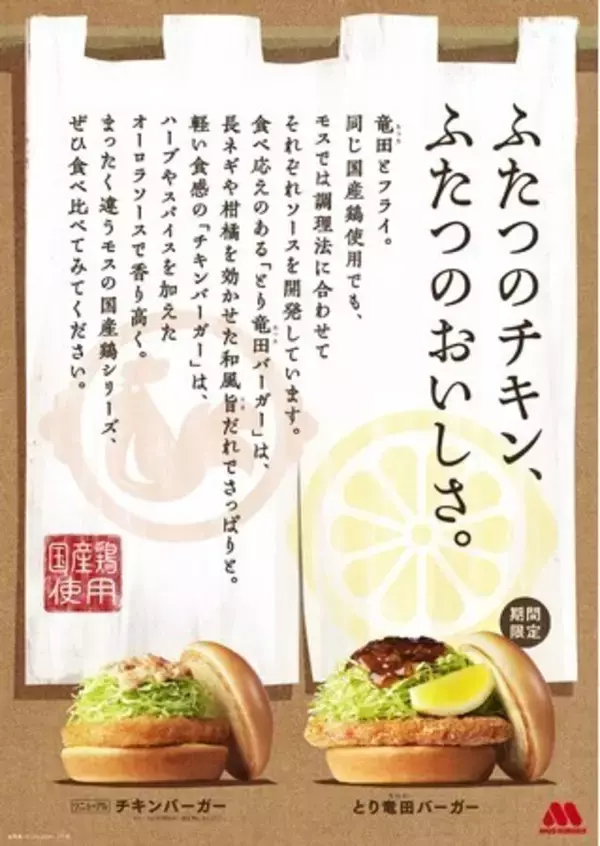 ふたつのチキン、
ふたつのおいしさ。
竜田とフライ。
同じ国産鶏使用でも、
モスでは調理法に合わせて
それぞれソースを開発しています。
食べ応えのある「とり竜田バーガー」は、
長ネギや柑橘を効かせた和風旨だれでさっぱりと。
軽い食感の「チキンバーガー」は、
ハーブやスパイスを加えた
オーロラソースで香り高く。
まったく違うモスの国産鶏シリーズ、
ぜひ食べ比べてみてください。
国産鶏
使用
期間
限定
リニューアル チキンバーガー
とり竜田バーガー
MOS BURGER